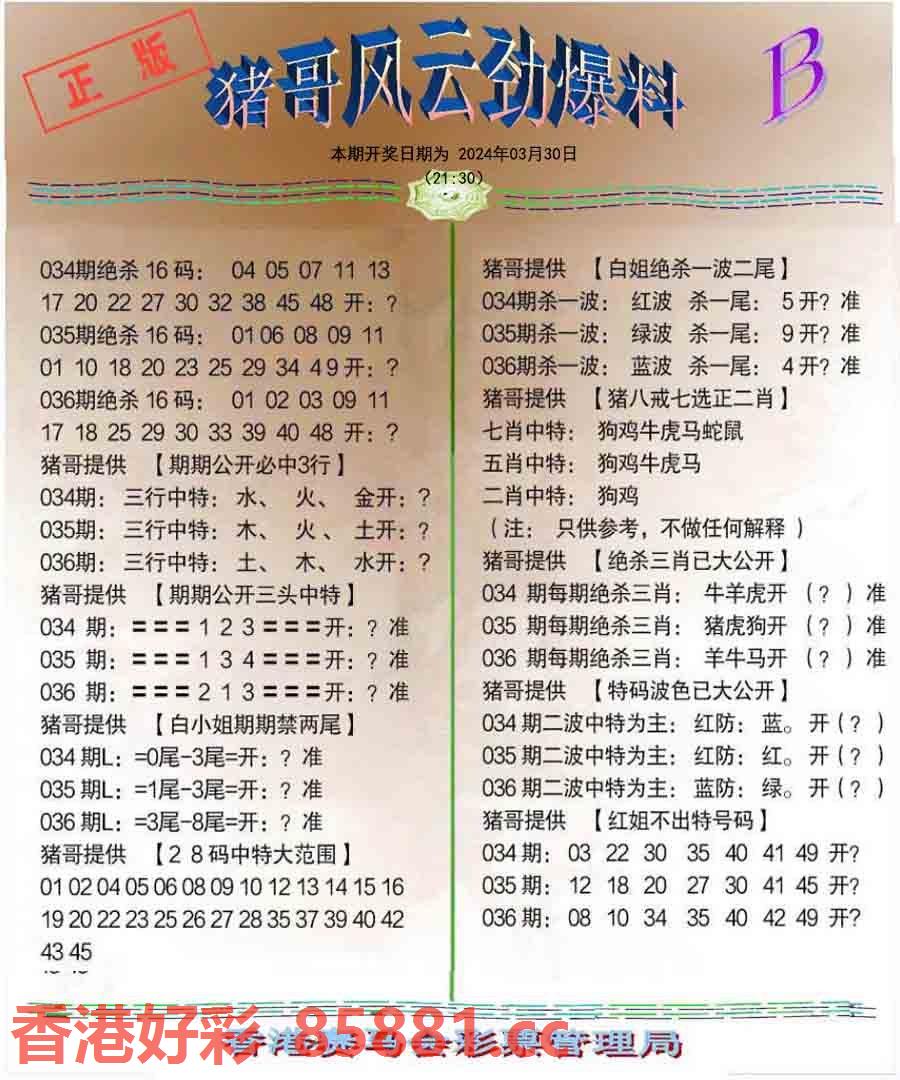 正版
猪哥风云劲爆料
B
本期开奖日期为 2024年03月30日
(21:30)
034期绝杀16码: 04 05 07 11 13
17 20 22 27 30 32 38 45 48 开: ?
035期绝杀16码: 01 06 08 09 11
01 10 18 20 23 25 29 34 49 开: ?
036期绝杀16码: 01 02 03 09 11
17 18 25 29 30 33 39 40 48 开: ?
猪哥提供 【期期公开必中3行】
034期: 三行中特: 水、 火、 金开: ?
035期: 三行中特: 木、 火、 土开: ?
036期: 三行中特: 土、 木、 水开: ?
猪哥提供 【期期公开三头中特】
034 期: === 1 2 3 ===开: ? 准
035 期: === 1 3 4 ===开: ? 准
036 期: === 2 1 3 ===开: ? 准
猪哥提供 【白小姐期期禁两尾】
034期L: =0尾-3尾=开: ? 准
035期L: =1尾-3尾=开: ? 准
036期L: =3尾-8尾=开: ? 准
猪哥提供 【28码中特大范围】
01 02 04 05 06 08 09 10 12 13 14 15 16
19 20 22 23 25 26 27 28 35 37 39 40 42
43 45
猪哥提供 【白姐绝杀一波二尾】
034期杀一波: 红波 杀一尾: 5开? 准
035期杀一波: 绿波 杀一尾: 9开? 准
036期杀一波: 蓝波 杀一尾: 4开? 准
猪哥提供 【猪八戒七选正二肖】
七肖中特: 狗鸡牛虎马蛇鼠
五肖中特: 狗鸡牛虎马
二肖中特: 狗鸡
(注: 只供参考, 不做任何解释)
猪哥提供 【绝杀三肖已大公开】
034 期每期绝杀三肖: 牛羊虎开 (?)准
035 期每期绝杀三肖: 猪虎狗开 (?)准
036 期每期绝杀三肖: 羊牛马开 (?)准
猪哥提供 【特码波色已大公开】
034期二波中特为主: 红防: 蓝。开(?)
035期二波中特为主: 红防: 红。开(?)
036期二波中特为主: 蓝防: 绿。开(?)
猪哥提供 【红姐不出特号码】
034期: 03 22 30 35 40 41 49 开?
035期: 12 18 20 27 30 41 45 开?
036期: 08 10 34 35 40 42 49 开?
香港好彩 85881.cc
香港赛马会彩票管理局